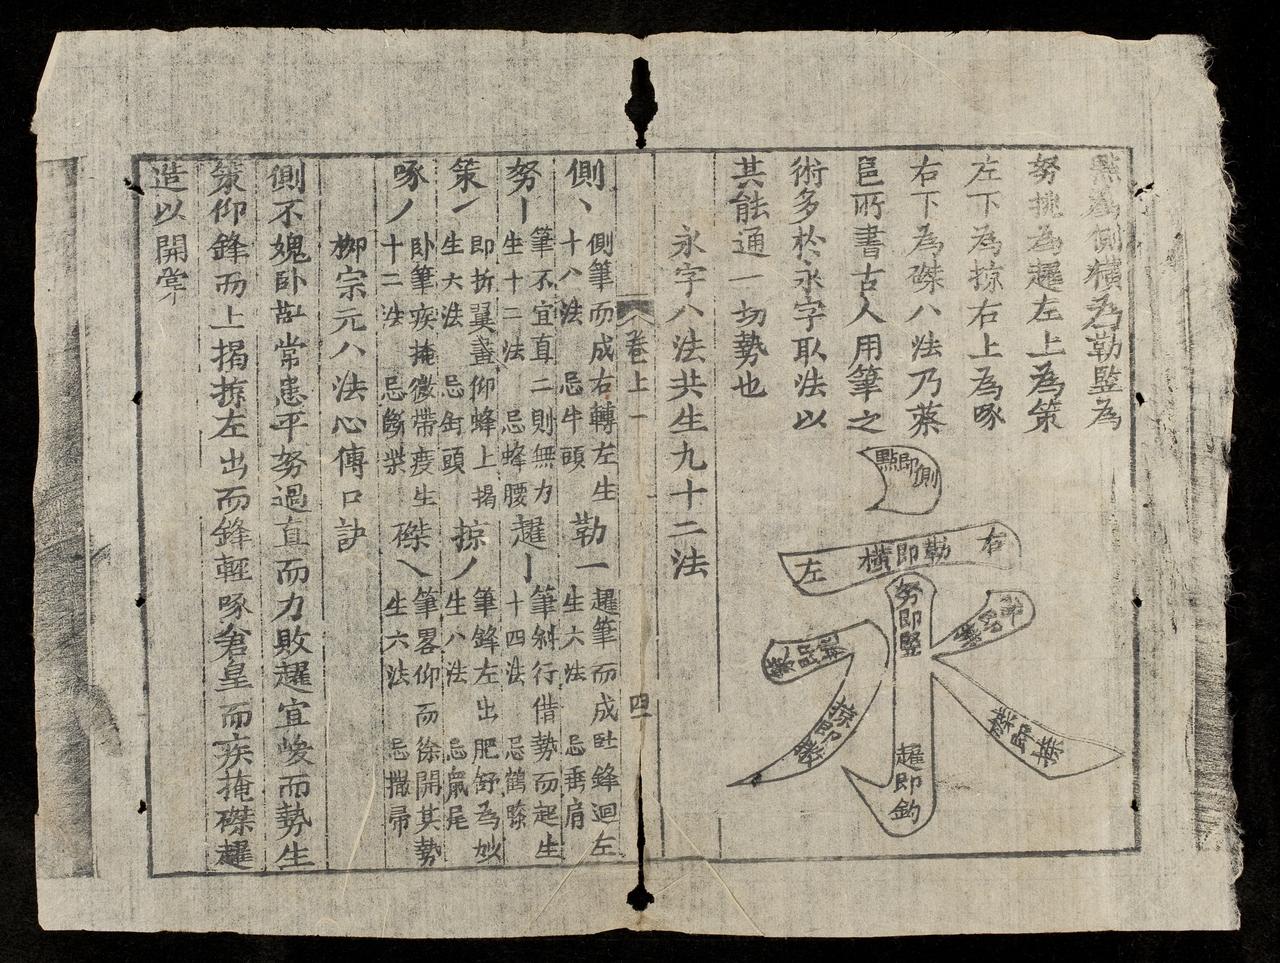 點為側橫為勒竪為
努挑為趯左上為策
左下為掠右上為啄
右下為磔八法乃蔡
邕所書古人用筆之
術多於永字取法以
其能通一切勢也
點即側
左 橫即勒 右
努即竪
趯即鈎
永字八法共生九十二法
卷上一
四
側丶 側筆而成右轉左生十八法 忌牛頭 勒一 趯筆而成 鋒迴左生六法 忌垂肩
努丨 筆不宜直二則無力生十二法 忌蜂腰 趯亅 筆斜行借勢而起生十四法 忌鶴膝
策 即折翼畫仰蜂上揭生六法 忌 頭 掠丿 筆鋒左出肥舒為妙生八法 忌鼠尾
啄丿 臥筆疾掩微帶 生十二法 忌 柴 磔乀 筆畧仰而徐開其勢生六法 忌撒帚
柳宗元八法心傳口訣
側不媿臥 常患平努過直而力敗趯宜峻而勢生
策仰鋒而上揭掠左出而鋒輕啄倉皇而疾掩磔趯
造以開掌